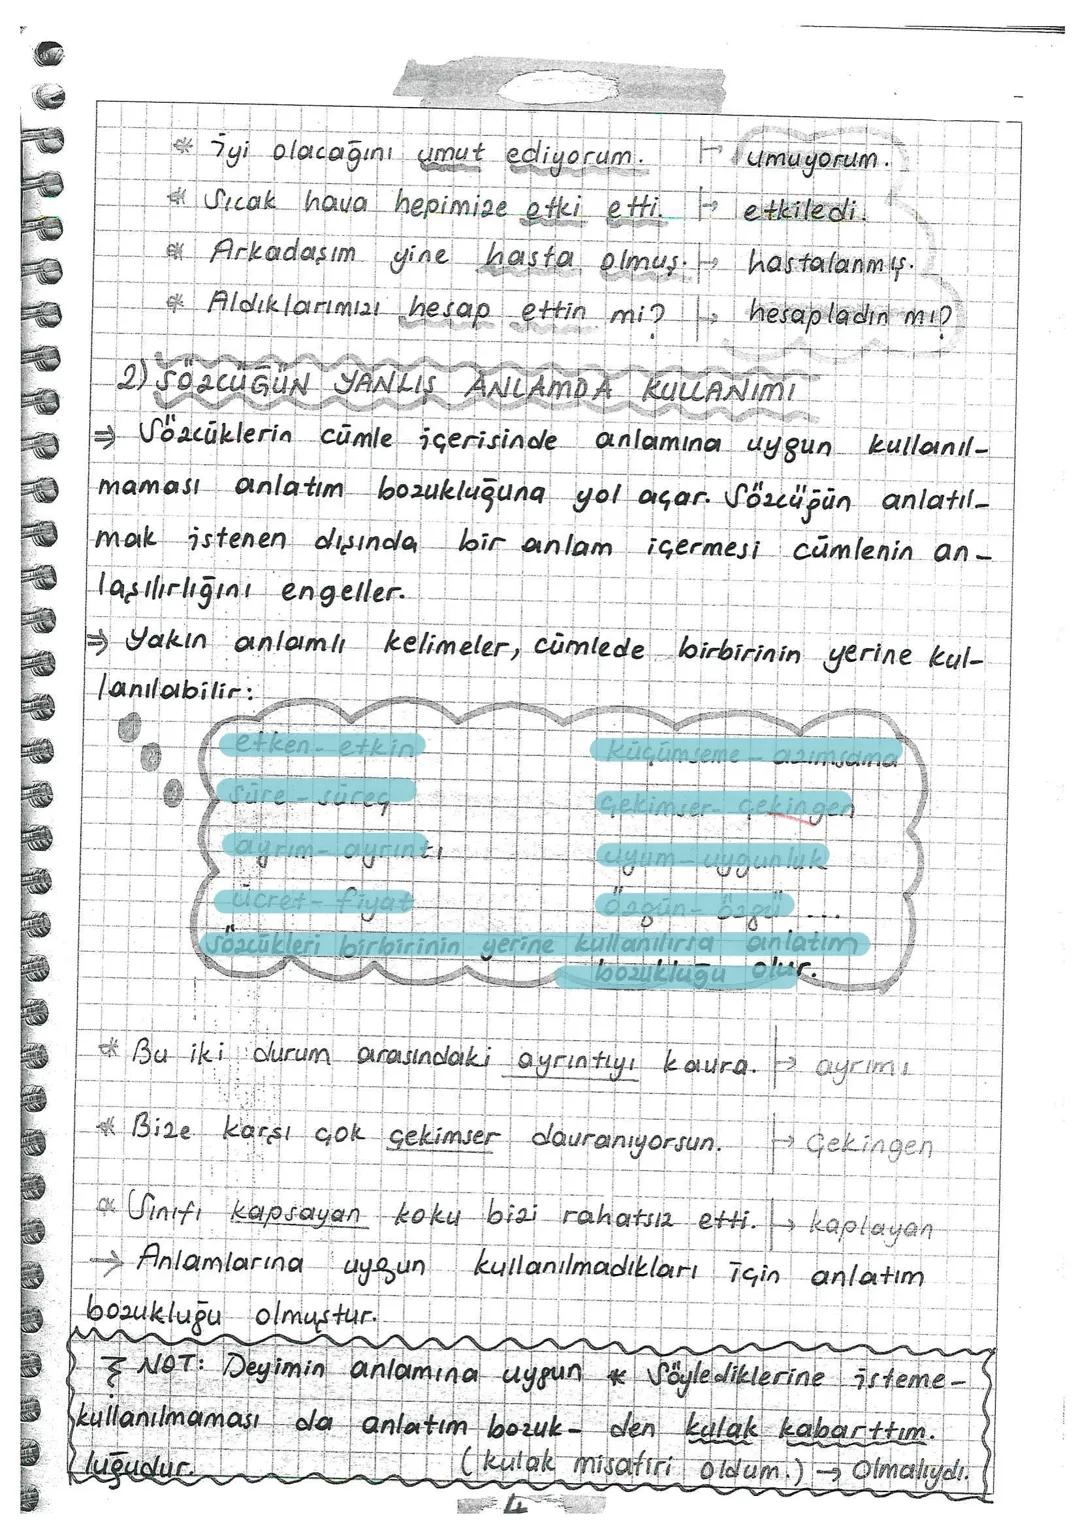 * İyi olacağını umut ediyorum. → umuyorum.
* Sıcak hava hepimize etki etti. → etkiledi.
* Arkadaşım yine hasta olmuş. → hastalanmış.
* Aldıklarımızı hesap ettin mi? → hesapladın mı?
2) SÖZCÜĞÜN YANLIŞ ANLAMDA KULLANIMI
⇒ Sözcüklerin cümle içerisinde anlamına uygun kullanıl-
maması anlatım bozukluğuna yol açar. Sözcüğün anlatıl-
mak istenen dışında bir anlam içermesi cümlenin an-
laşılırlığını engeller.
⇒ Yakın anlamlı kelimeler, cümlede birbirinin yerine kul-
lanılabilir:
etken - etkin küçümseme - azımsama
süre - süreç çekimser - çekingen
ayrım - ayrıntı uyum - uygunluk
ücret - fiyat özgün - özgü ...
sözcükleri birbirinin yerine kullanılırsa anlatım
bozukluğu olur.
* Bu iki durum arasındaki ayrıntıyı kavra. → ayrımı
* Bize karşı çok çekimser davranıyorsun. → Çekingen
* Sınıfı kapsayan koku bizi rahatsız etti. → kaplayan
→ Anlamlarına uygun kullanılmadıkları için anlatım
bozukluğu olmuştur.
NOT: Deyimin anlamına uygun * Söylediklerine isteme-
kullanılmaması da anlatım bozuk- den kulak kabarttım.
luğudur. (kulak misafiri oldum.) → Olmalıydı.
4